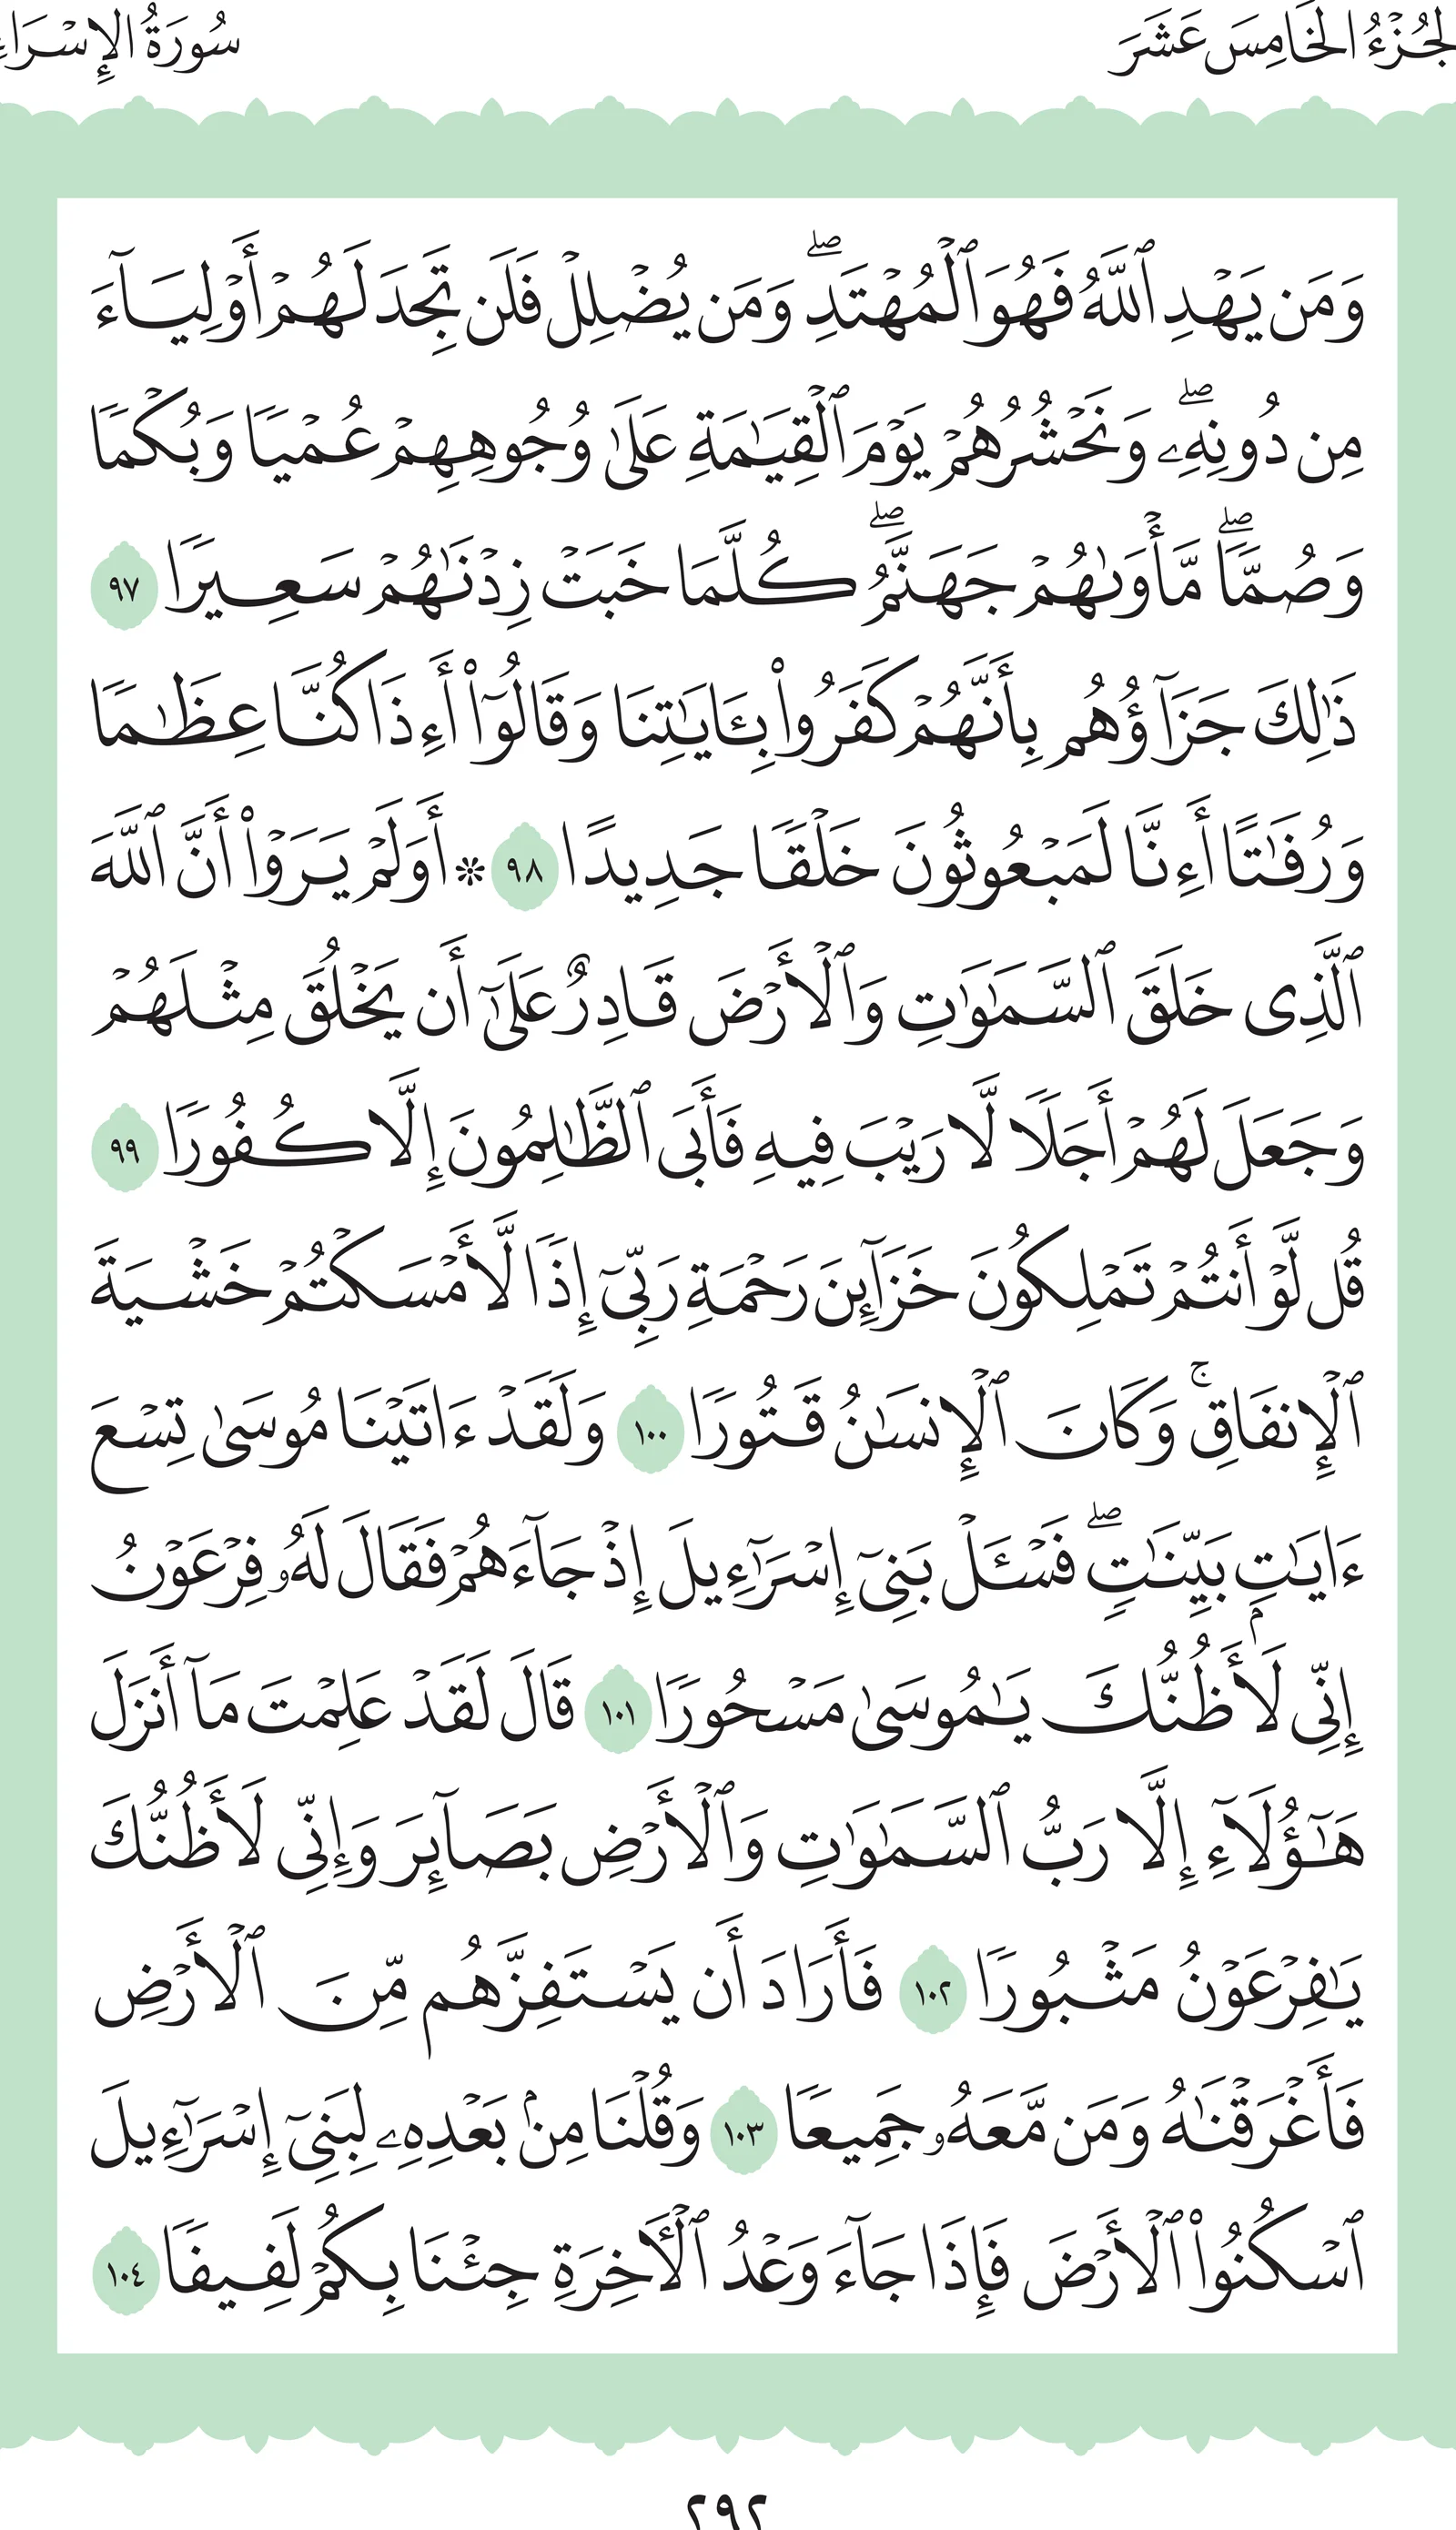 الجُزْءُ الخَامِسَ عَشَرَ
سُورَةُ الإِسْرَاءِ
وَمَن يَهْدِ ٱللَّهُ فَهُوَ ٱلْمُهْتَدِۖ وَمَن يُضْلِلْ فَلَن تَجِدَ لَهُمْ أَوْلِيَآءَ
مِن دُونِهِۦۖ وَنَحْشُرُهُمْ يَوْمَ ٱلْقِيَٰمَةِ عَلَىٰ وُجُوهِهِمْ عُمْيًا وَبُكْمًا
وَصُمًّاۖ مَّأْوَىٰهُمْ جَهَنَّمُۖ كُلَّمَا خَبَتْ زِدْنَٰهُمْ سَعِيرًا ٩٧
ذَٰلِكَ جَزَآؤُهُم بِأَنَّهُمْ كَفَرُوا۟ بِـَٔايَٰتِنَا وَقَالُوٓا۟ أَءِذَا كُنَّا عِظَٰمًا
وَرُفَٰتًا أَءِنَّا لَمَبْعُوثُونَ خَلْقًا جَدِيدًا ٩٨ ۞ أَوَلَمْ يَرَوْا۟ أَنَّ ٱللَّهَ
ٱلَّذِى خَلَقَ ٱلسَّمَٰوَٰتِ وَٱلْأَرْضَ قَادِرٌ عَلَىٰٓ أَن يَخْلُقَ مِثْلَهُمْ
وَجَعَلَ لَهُمْ أَجَلًا لَّا رَيْبَ فِيهِ فَأَبَى ٱلظَّٰلِمُونَ إِلَّا كُفُورًا ٩٩
قُل لَّوْ أَنتُمْ تَمْلِكُونَ خَزَآئِنَ رَحْمَةِ رَبِّىٓ إِذًا لَّأَمْسَكْتُمْ خَشْيَةَ
ٱلْإِنفَاقِۚ وَكَانَ ٱلْإِنسَٰنُ قَتُورًا ١٠٠ وَلَقَدْ ءَاتَيْنَا مُوسَىٰ تِسْعَ
ءَايَٰتٍۭ بَيِّنَٰتٍۖ فَسْـَٔلْ بَنِىٓ إِسْرَٰٓءِيلَ إِذْ جَآءَهُمْ فَقَالَ لَهُۥ فِرْعَوْنُ
إِنِّى لَأَظُنُّكَ يَٰمُوسَىٰ مَسْحُورًا ١٠١ قَالَ لَقَدْ عَلِمْتَ مَآ أَنزَلَ
هَٰٓؤُلَآءِ إِلَّا رَبُّ ٱلسَّمَٰوَٰتِ وَٱلْأَرْضِ بَصَآئِرَ وَإِنِّى لَأَظُنُّكَ
يَٰفِرْعَوْنُ مَثْبُورًا ١٠٢ فَأَرَادَ أَن يَسْتَفِزَّهُم مِّنَ ٱلْأَرْضِ
فَأَغْرَقْنَٰهُ وَمَن مَّعَهُۥ جَمِيعًا ١٠٣ وَقُلْنَا مِنۢ بَعْدِهِۦ لِبَنِىٓ إِسْرَٰٓءِيلَ
ٱسْكُنُوا۟ ٱلْأَرْضَ فَإِذَا جَآءَ وَعْدُ ٱلْـَٔاخِرَةِ جِئْنَا بِكُمْ لَفِيفًا ١٠٤
٢٩٢